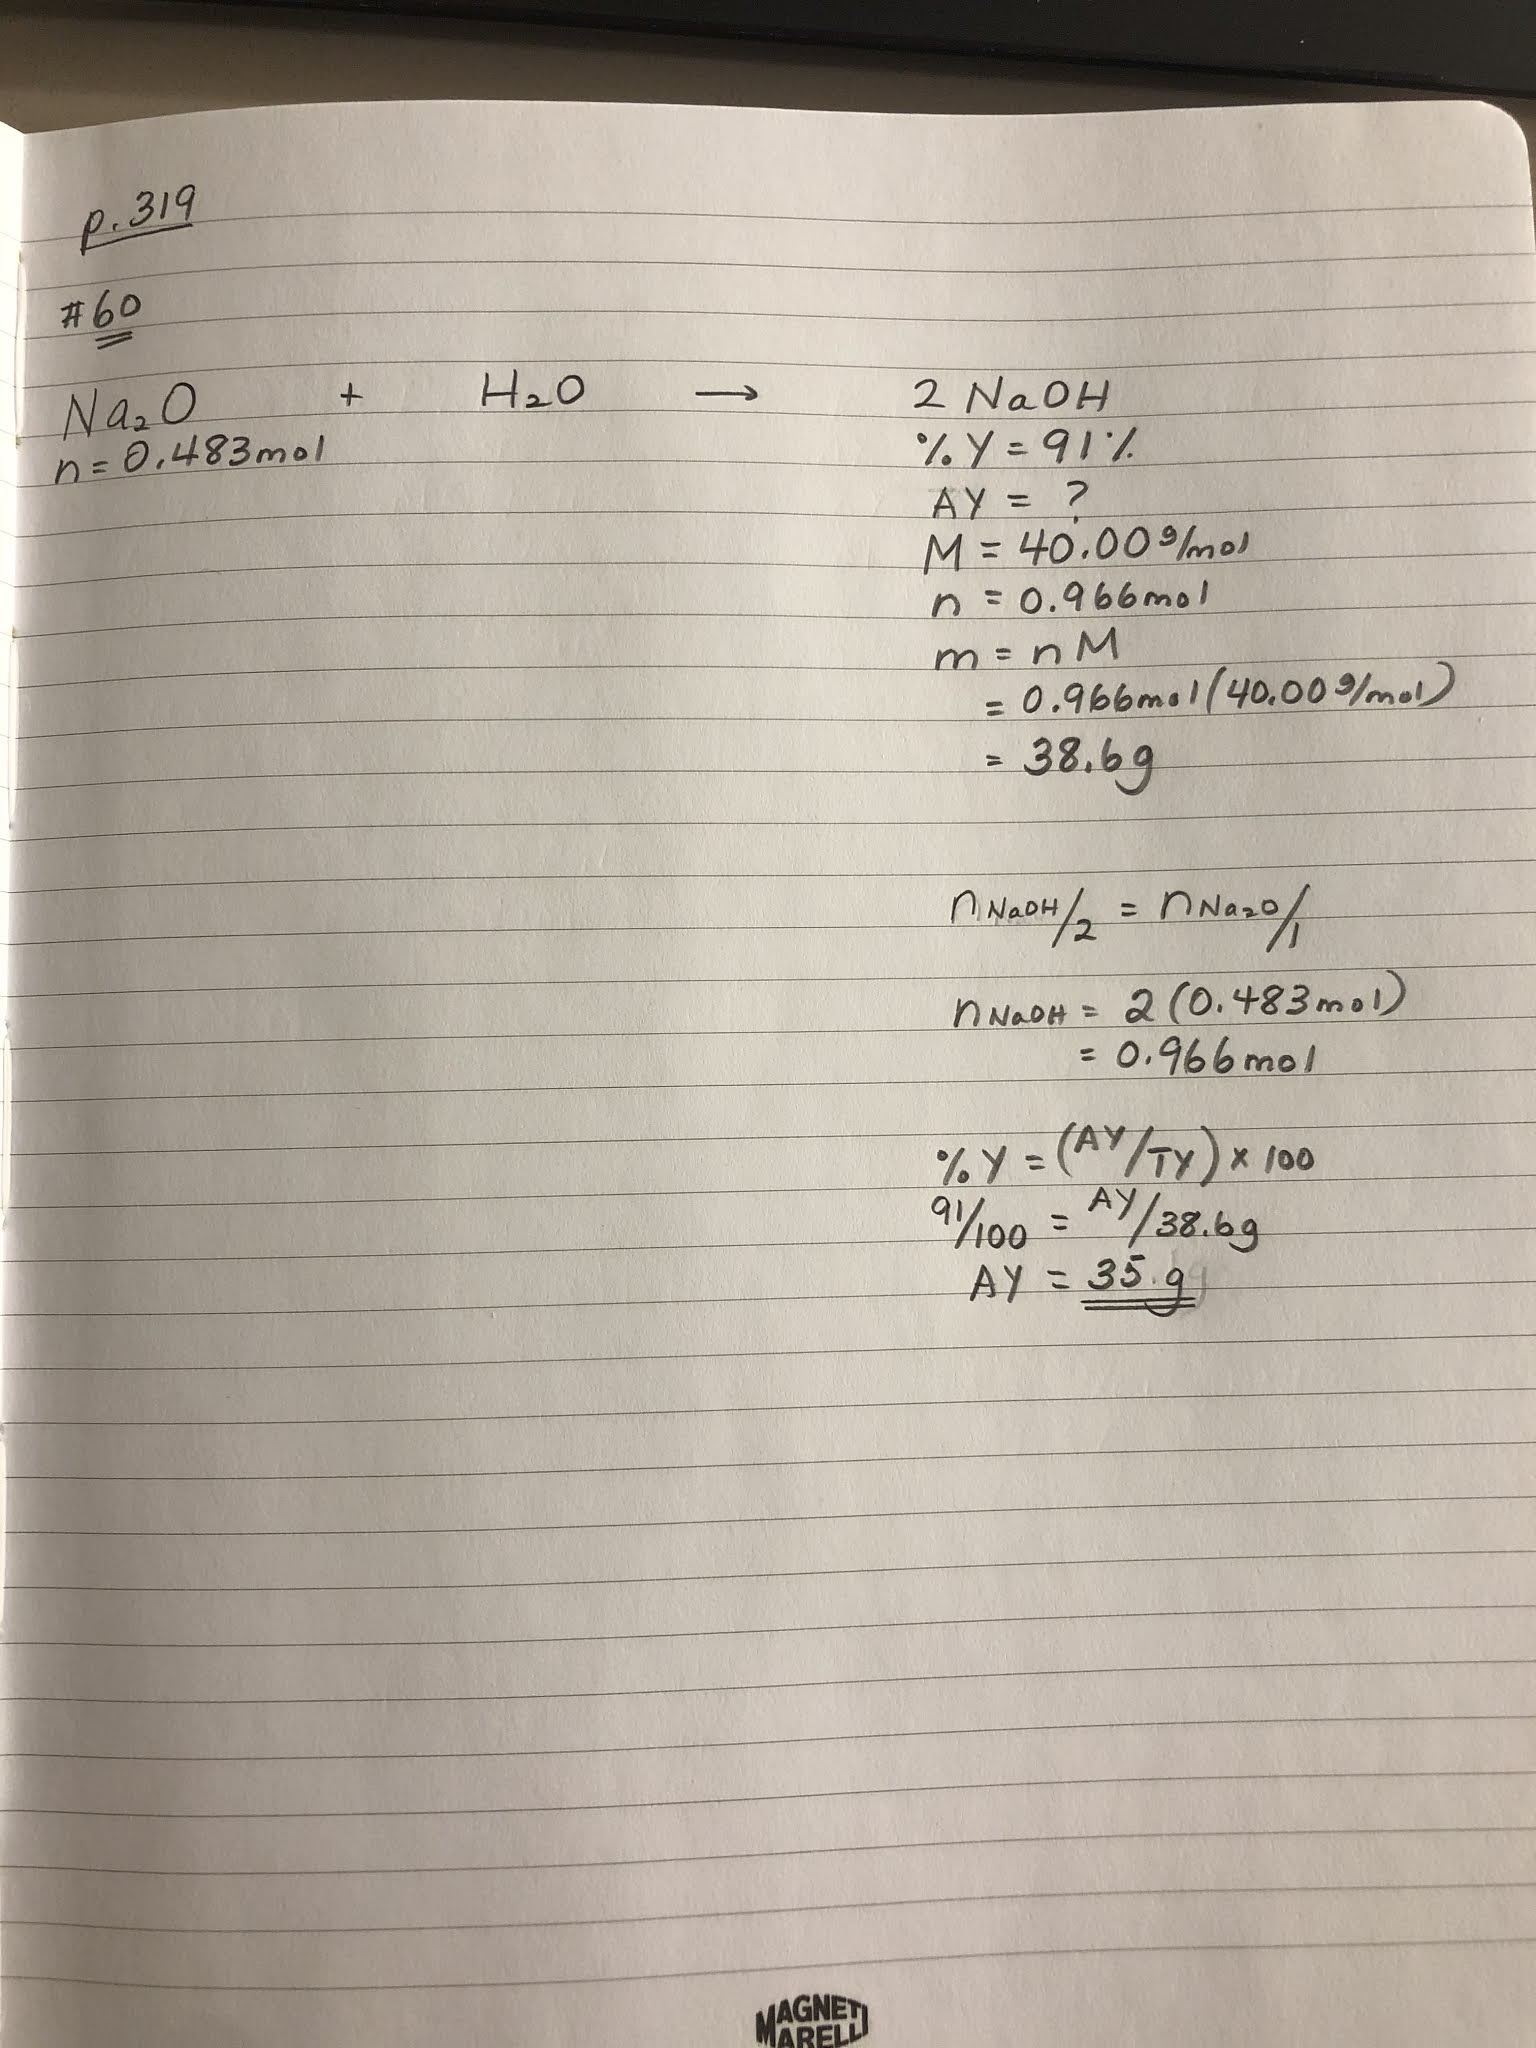 p. 319
#60
Na₂O + H₂O → 2 NaOH
n = 0.483 mol
%Y = 91%
AY = ?
M = 40.00 g/mol
n = 0.966 mol
m = nM
= 0.966 mol (40.00 g/mol)
= 38.6g
n NaOH/2 = n Na₂O/1
n NaOH = 2 (0.483 mol)
= 0.966 mol
%Y = (AY/TY) x 100
91/100 = AY/38.6g
AY = 35.g
MAGNETI
MARELLI